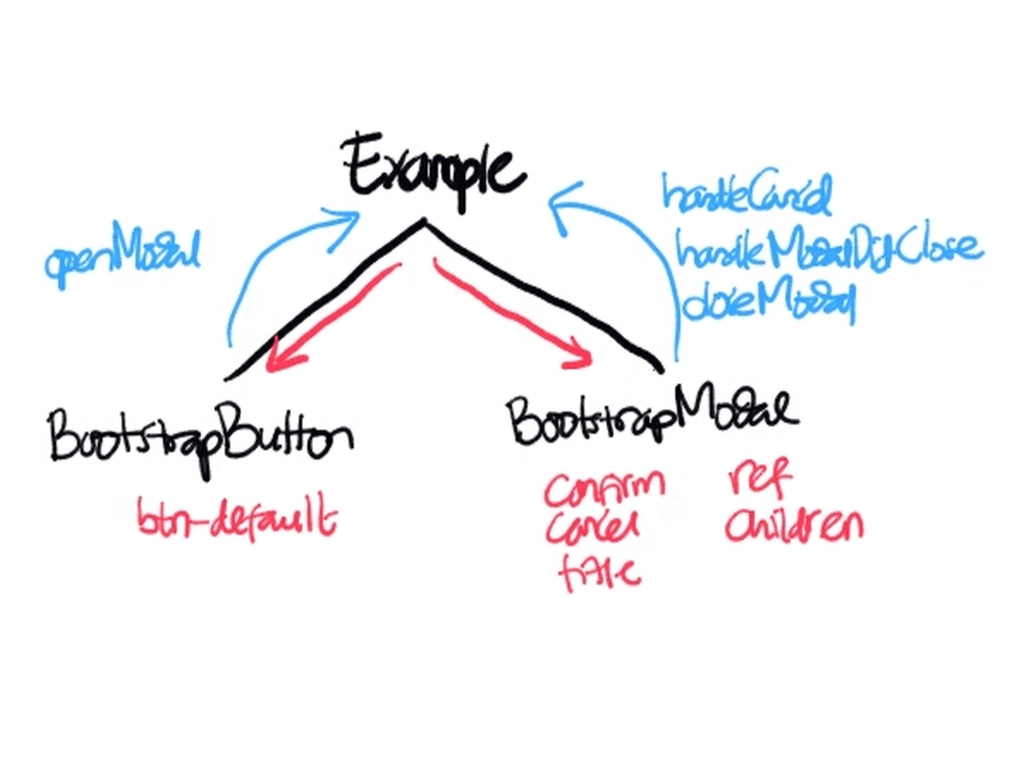 Example
openModal
handleCancel
handleModalDidClose
closeModal
BootstrapButton
BootstrapModal
btn-default
confirm
cancel
title
ref
children